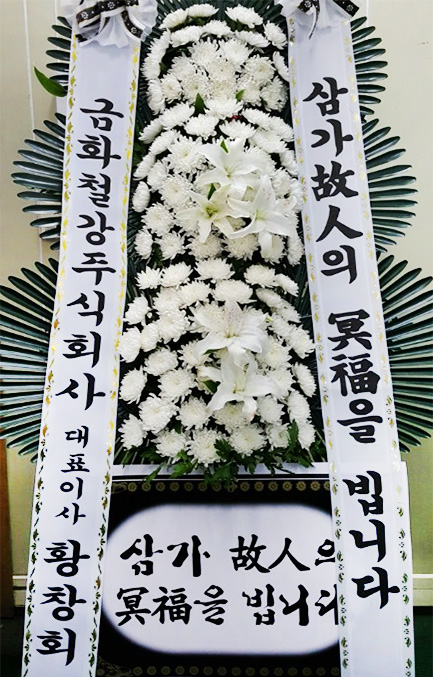 금화철강주식회사 대표이사 황창회
삼가 故人의 冥福을 빕니다
삼가 故人의
冥福을 빕니다